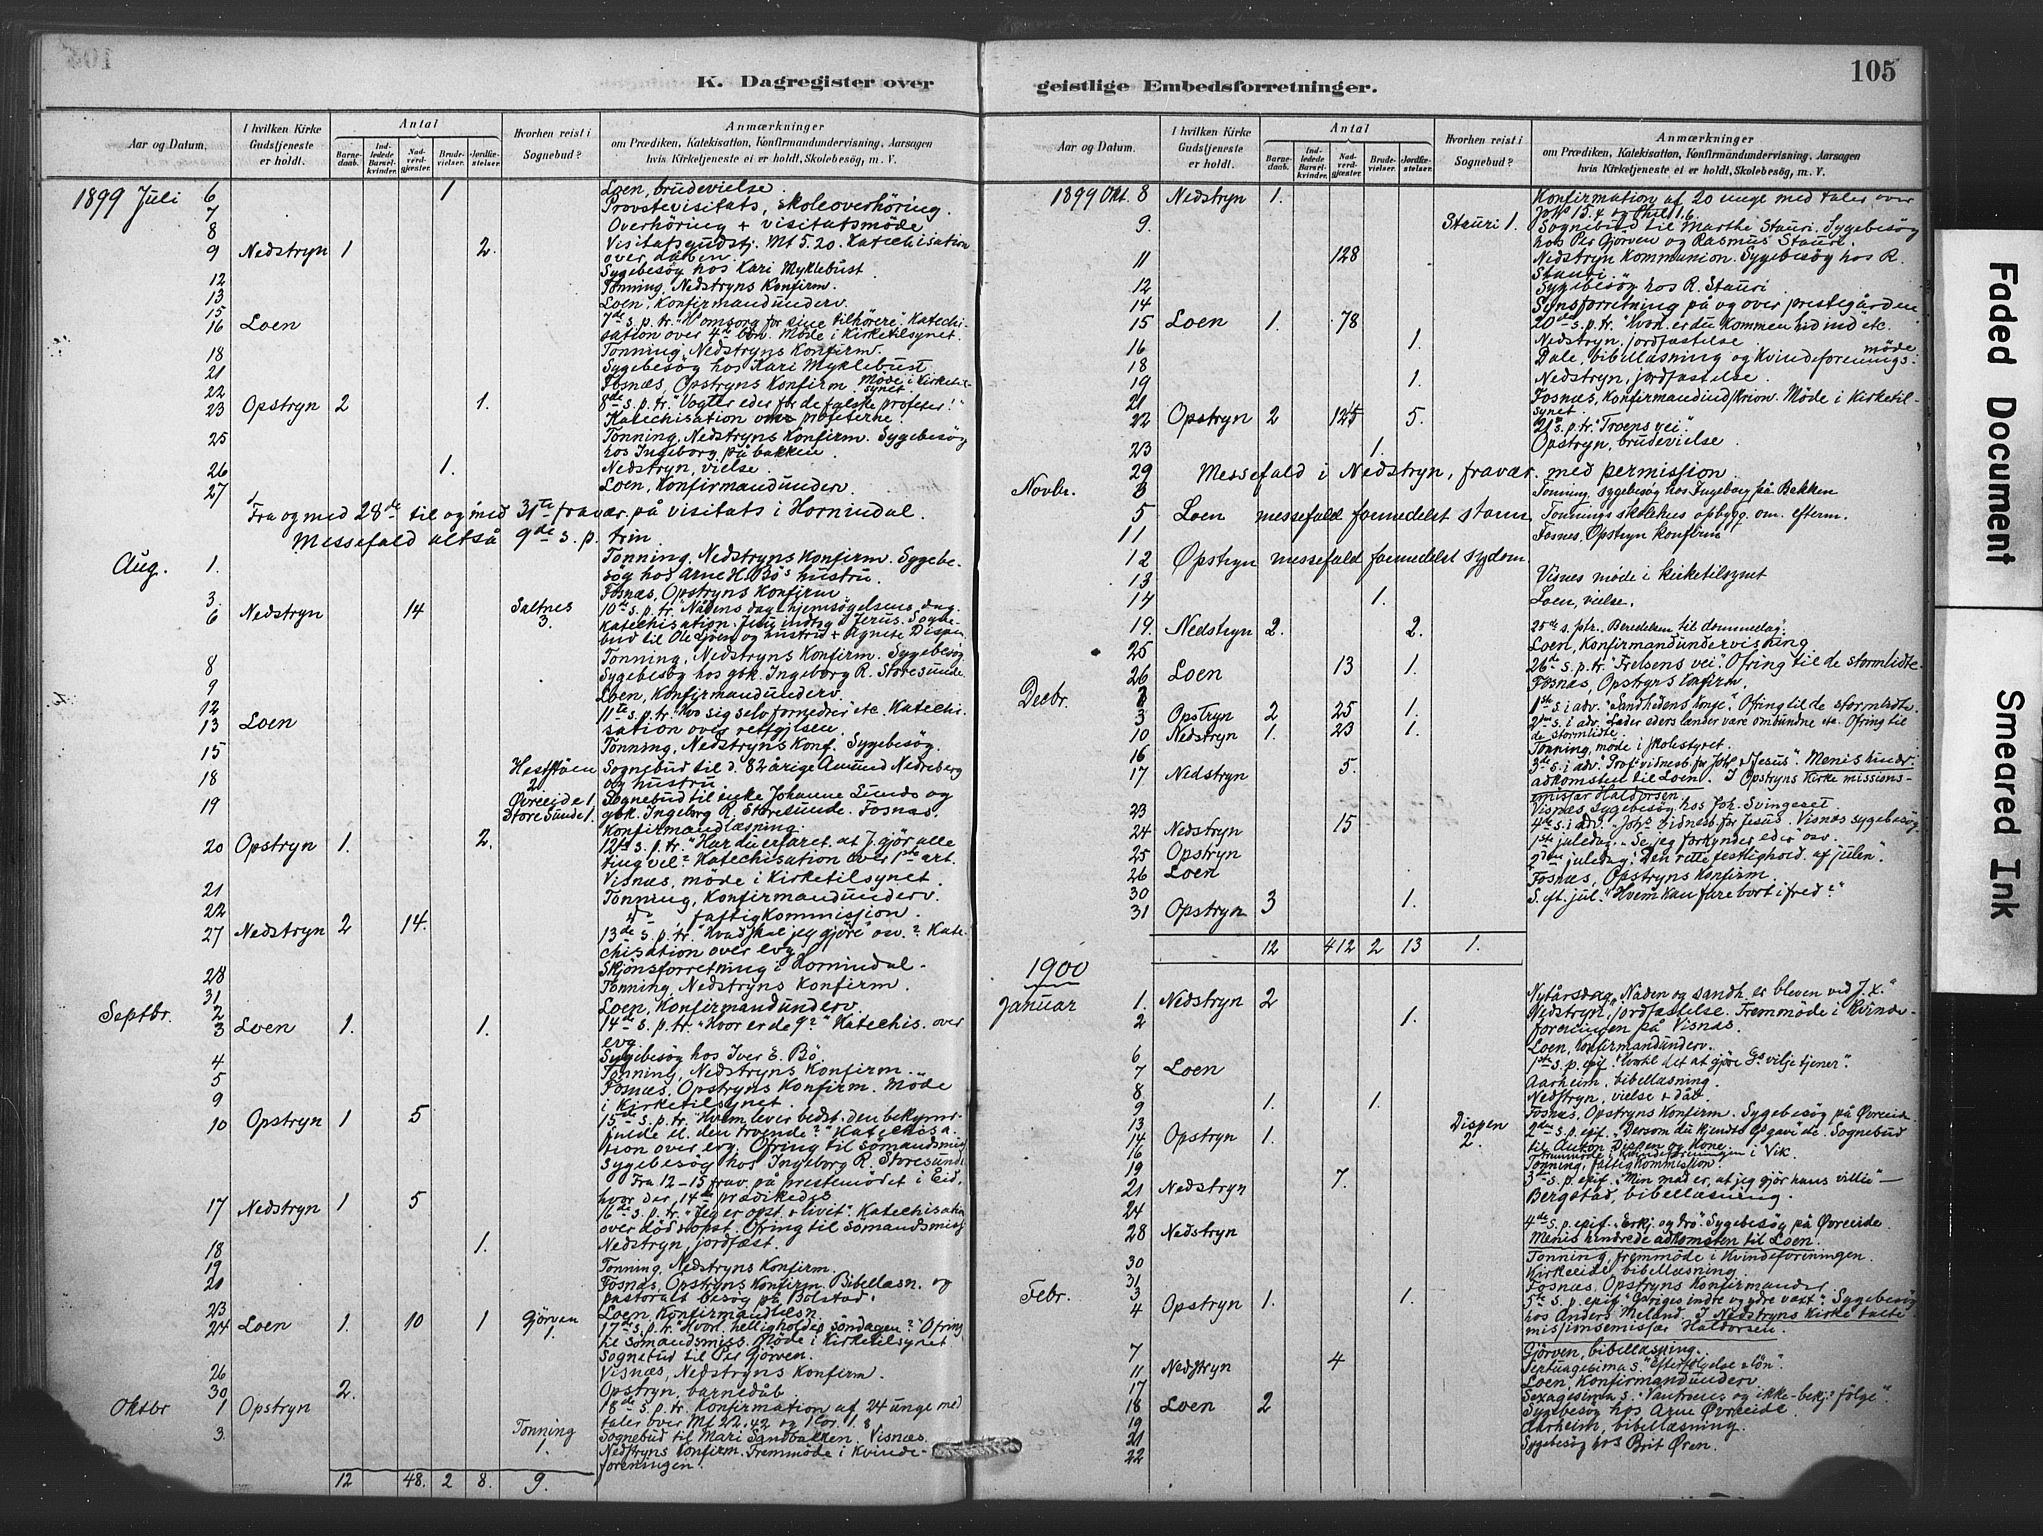 K. Dagregister over
Aar og Datum.
I hvilken Kirke Gudstjeneste er holdt.
Antal
Barnedaab.
Indledede Barselkvinder.
Nadverdgjæster.
Brudevielser.
Jordfæstelser.
Hvorhen reist i Sognebud?
Anmærkninger
om Prædiken, Katekisation, Konfirmandundervisning, Aarsagen
hvis Kirketjeneste ei er holdt, Skolebesøg, m. V.
1899 Juli 6 1 Loen, brudevielse.
7 Provstevisitats, skoleoverhöring.
8 Overhöring + visitatsmöde
9 Nedstryn 1 2. Visitatsgudstj. Mt 5.20. Katechisation
over dåben.
Sygebesög hos Kari Myklebust.
12 Tonning, Nedstryns Konfirm.
13 Loen, Konfirmandunderv.
15
16 Loen 7de s. p. tr. "H. omsorg for sine tilhörere". Katechi-
sation over 4de bön. Möde i Kirketilsynet.
18 Tonning, Nedstryns Konfirm.
21 Sygebesög hos Kari Myklebust.
22 Fosnæs, Opstryns Konfirm. Møde i Kirketil-
synet
23 Opstryn 2 1. 8de s. p. tr. "Vogter eder for de falske profeter!"
Katechisation over profeterne.
25 Tonning, Nedstryns Konfirm. Sygebesög
hos Ingeborg på bakken.
26 1. Nedstryn, vielse.
27 Loen, Konfirmandunderv.
Fra og med 28de til og med 31te fravær. på visitats i Hornindal.
Messefald altså 9de s. p. trin.
Aug. 1. Tonning, Nedstryns Konfirm. Sygebe-
sög hos Arne H. Bö's hustru.
3. Fosnæs, Opstryns Konfirm.
6 Nedstryn 14 Saltnes 3. 10de s. p. tr. "Nådens dag, hjemsögelsens dag.
Katechisation. Jesu indtog i Jerus. Sogne-
bud til Ole Loen og hustru + Agnete Dispen
8 Tonning, Nedstryns Konfirm. Sygebesög
9 Sygebesög hos gbk. Ingeborg R. Storesunde.
12 Loen, Konfirmandunderv.
13 Loen 11te s. p. tr. "Hvo sig selv fornedrer" etc. Katechi-
sation over retfgjelsen.
15 Tonning, Nedstryns Konf. Sygebesög.
18 2 Sognebud til d. 82 årige Amund Nedreberg
og hustru.
19 Övreeide 1, Storesunde 1. Sognebud til enke Johanne Lunds og
gbk. Ingeborg R. Storesunde. Fosnæs,
Konfirmandlæsning.
20 Opstryn 1. 2. 12te s. p. tr. "Har du erfaret, at J. gjör alle
ting vel?" Katechisation over 1ste art.
21 Visnæs, möde i Kirketilsynet.
22 Tonning, Konfirmandunderv.
do fattigkommission.
27 Nedstryn 2 14. 13de s. p. tr. "Hvad skal jeg gjöre" osv.? Kate-
chisation over evg.
28 Skjönsforretning i Hornindal.
31 Tonning, Nedstryns Konfirm.
Septbr. 2 Loen, Konfirmandunderv.
3 Loen 1. 1. 14de s. p. tr. "Hvor er de 9?" Katechis. over
evg.
4 Sygebesög hos Iver E. Bö.
5 Tonning, Nedstryns Konfirm.
9 Fosnæs, Opstryns Konfirm. Möde
i Kirketilsynet.
10 Opstryn 1 5 15de s. p. tr. "Hvem lever bedst, den bekym-
fulde el. den troende?" Katechisa-
tion over evg. Ofring til sömandsmiss
Sygebesög hos Ingeborg R. Storesunde
Fra 12-15 frav. på prestemödet i Eid,
hvor der 14de prædikedes
17 Nedstryn 1 5 16de s. p. tr. "Jeg er opst. + livit". Katechisation
over död + opst. Ofring til sömandsmiss
18 1. Nedstryn, jordfæst.
19 Tonning, Nedstryns Konfirm.
21 Fosnæs, Opstryns Konfirm. Bibellæsn. og
pastoralt besög på Bolstad.
23 Loen, Konfirmandlæsn.
24 Loen 1. 10 1 Gjörven 1. 17de s. p. tr. "Hvorl. helligholdes söndagen?" Ofring
til sömandsmiss. Möde i Kirketilsynet
Sognebud til Per Gjörven.
26 Visnæs, Nedstryns Konfirm.
30 2. Opstryn, barnedåb.
Oktbr 1 Opstryn 18de s. p. tr. Konfirmation af 24 unge med
taler over Mt 22.42 og 1 Cor. 1.8
3. Tonning 1. Sognebud til Mari Sandbakken. Visnæs.
Nedstryns Konfirm. Fremmöde i Kvinde-
foreningen.
12 48. 2 8. 9.
geistlige Embedsforretninger.
105
Aar og Datum.
I hvilken Kirke Gudstjeneste er holdt.
Antal
Barnedaab.
Indledede Barselkvinder.
Nadverdgjæster.
Brudevielser.
Jordfæstelser.
Hvorhen reist i Sognebud?
Anmærkninger
om Prædiken, Katekisation, Konfirmandundervisning, Aarsagen
hvis Kirketjeneste ei er holdt, Skolebesøg, m. V.
1899 Okt. 8 Nedstryn 1. Konfirmation af 20 unge med taler over
Joh. 15.4 og Phil. 1.6
9. Stauri 1. Sognebud til Marthe Stauri. Sygebesög
hos Per Gjörven og Rasmus Stauri.
11 128 Nedstryn Kommunion. Sygebesög hos R.
Stauri.
12 Sygebesög hos R. Stauri
14 Synsforretning på og over prestegården
15 Loen 1. 78 20de s. p. tr. "Hvorl. er du kommen hid ind" etc.
16 1. Nedstryn, jordfæstelse.
18 Dale, bibellæsning og Kvindeforenings-
möde
19 1. Nedstryn, jordfæstelse.
21 Fosnæs, Konfirmandind/krion. Möde i Kirketil-
synet.
22 Opstryn 2 125 5. 21de s. p. tr. "Troens vei".
23 1. Opstryn, brudevielse.
29 Messefald i Nedstryn, fravær. med permission
Novbr. 3 Tonning, sygebesög hos Ingeborg på Bakken
5 Loen messefald formedelst storm Tonnings skolehus opbygg. om. efterm.
11 Fosnes, Opstryn konfirm
12 Opstryn messefald formedelst sygdom
13 Visnes möde i kirketilsynet
14 1. Loen, vielse.
19. Nedstryn 2. 2. 25de s. p tr. "Beredelsen til dommedag".
25 Loen, Konfirmandundervisning
26 Loen 13 1. 26de s. p. tr. "Frelsens vei". Ofring til de stormlidte.
Decbr. 2 Fosnæs, Opstryns Konfirm.
3 Opstryn 2 25 1. 1ste s. i adv. "Sandhedens konge". Ofring til de stormlidte.
10 Nedstryn 1. 23 1. 2den s. i adv. "Lader eders lænder være ombundne" etc. Ofring til
de stormlidte.
16 Tonning, möde i skolestyret.
17 Nedstryn 5. 3de s. i adv. "Profvidnesb. fr Joh. + Jesus". Menis hindr
adkomsten til Loen. I Opstryns Kirke missions-
emissær Haldorsen.
23 Visnæs, sygebesög hos Joh. Svingeset.
24 Nedstryn 15 4de s. i adv. "Joh's vidnesb. for Jesus". Visnæs sygebesög.
25 Opstryn 1ste juledag. "Se, jeg forkynder eder" osv.
26 Loen 2den juledag. "Den rette festlighold. af julen".
30 Fosnæs, Opstryns Konfirm.
31 Opstryn 3 1. S. eft. jul. "Hvem kan fare bort i fred?"
12 412 2 13 1.
1900
Januar 1. Nedstryn 2 Nytårsdag. "Nåden og sandh. er bleven ved J. X."
2 1. Nedstryn, jordfæstelse. Fremmöde i Kvinde-
foreningen på Visnæs.
6 Loen, Konfirmandunderv.
7 Loen 1ste s. p. epif. "Hvortil det at gjöre Gs vilje tjener".
8 Aarheim, bibellæsning.
9 1. 1. Nedstryn, vielse + dåb.
13 Fosnæs, Opstryns Konfirm. Sygebesög på Övreeide
14 Opstryn 1. Dispen 2. 2den s. p. epif. "Dersom du kjendte Gs gave" de. Sognebud
til Anton Dispen og Kone.
16 Fremmöde i Kvindeforeningen i Vik.
19 Tonning, fattigkommission.
21 Nedstryn 7. 3de s. p. epif. "Min mad er, at jeg gjör hans villie" —
24 Bergstad, bibellæsning.
28 Nedstryn 4de s. p. epif. "Erkj. og tro". Sygebesög på Övreeide.
Menis hindrede adkomsten til Loen.
30 Tonning, fremmöde i Kvindeforeningen.
31 Kirkeeide, bibellæsning.
Febr. 3 Fosnæs, Opstryns Konfirmander
4 Opstryn 1. 1. 5te s. p. epif. "G. riges indre og ydre vækst". Sygebesög
hos Anders Meland. I Nedstryns Kirke talte
missionsemissær Haldorsen.
7 Gjörven, bibellæsning.
11 Nedstryn 4 Septuagesima s. "Efterfölgelse + lön".
17 Loen, Konfirmandunderv.
18 Loen 2 Sexagesima s. "Vantroens og ikke-bekj.s fölge".
19 Sygebesög hos Arne Övreeide.
21 Aarheim, bibellæsning.
22 Sygebesög hos Brit Ören.
Faded Document
Smeared Ink